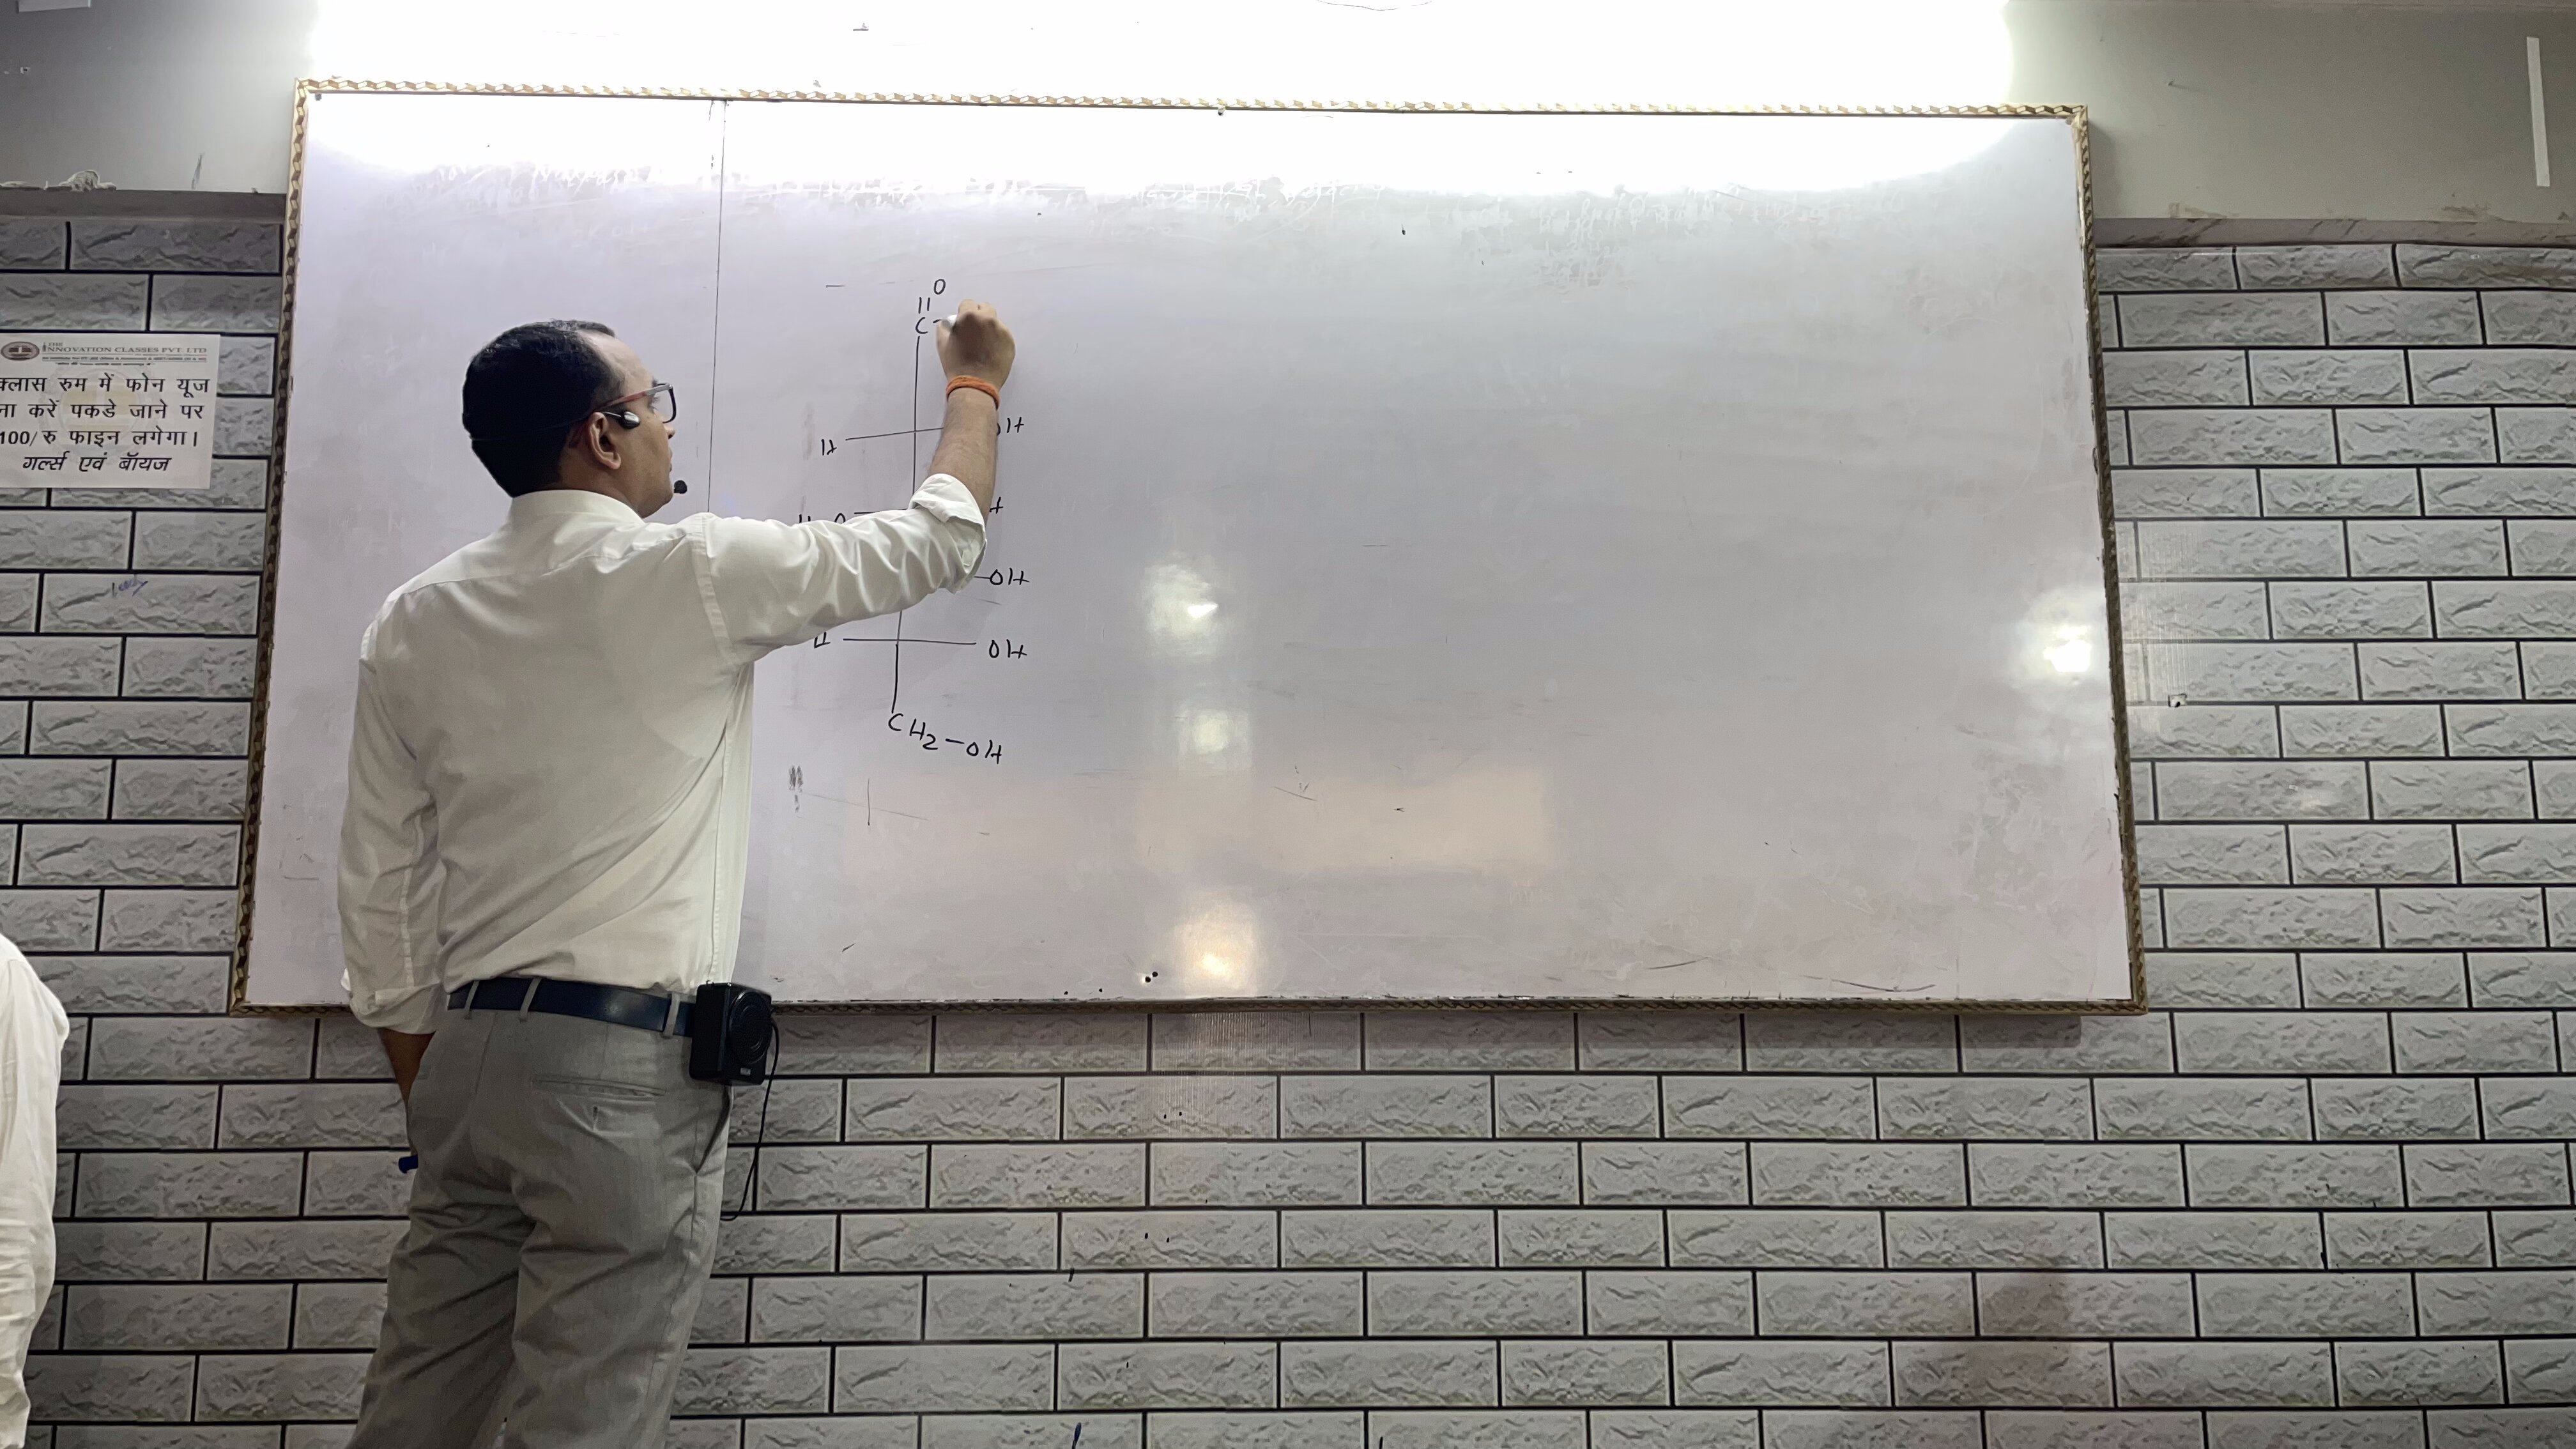 THE
INNOVATION CLASSES PVT. LTD
क्लास रुम में फोन यूज
ना करें पकडे जाने पर
100/रु फाइन लगेगा।
गर्ल्स एवं बॉयज
O
||
C -
H OH
H O H
-OH
H OH
CH2-OH